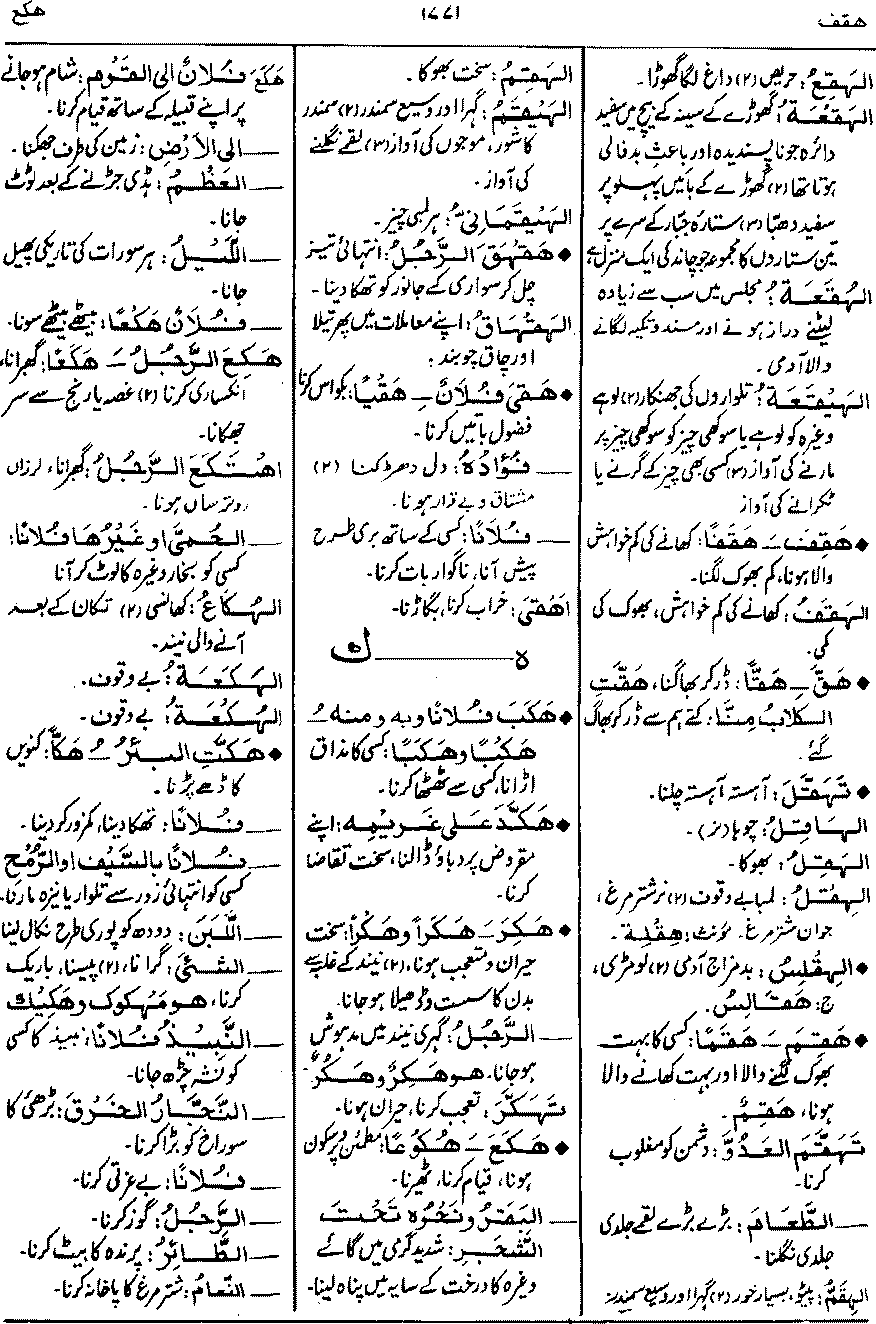 هقف
١٦٦١
هكع
الهَقِعُ: حریص (۲) داغ لگا گھوڑا۔
الهَقْعَةُ: گھوڑے کے سینہ کے بیچ میں سفید
دائرہ جو ناپسندیدہ اور باعثِ بدفالی
ہوتا تھا (۲) گھوڑے کے بائیں پہلو پر
سفید دھبّا (۳) ستارہ جبّار کے سرے پر
تین ستاروں کا مجموعہ جو چاند کی ایک منزل ہے
الهُقَعَةُ: مجلس میں سب سے زیادہ
لیٹنے دراز ہونے اور مسند و تکیہ لگانے
والا آدمی۔
الهَيْقَعَةُ: تلواروں کی جھنکار (۲) لوہے
وغیرہ کو لوہے یا سوکھی چیز کو سوکھی چیز پر
مارنے کی آواز (۳) کسی بھی چیز کے گرنے یا
ٹکرانے کی آواز
◆ هَقِفَ ـَ هَقَفًا: کھانے کی کم خواہش
والا ہونا، کم بھوک لگنا۔
الهَقَفُ: کھانے کی کم خواہش، بھوک کی
کمی۔
◆ هَقَّ ـِ هَقًّا: ڈر کر بھاگنا، هَقَّتِ
الكلابُ مِنَّا: کتے ہم سے ڈر کر بھاگ
گئے۔
◆ تَهَقَّلَ: آہستہ آہستہ چلنا۔
الهَاقِلُ: چوہا (نر)۔
الهَقِلُ: بھوکا۔
الهِقْلُ: لمبا بے وقوف (۲) نر شتر مرغ،
جوان شتر مرغ۔ مؤنث: هِقْلة۔
◆ الهِقْلِسُ: بدمزاج آدمی (۲) لومڑی،
ج: هَقَالِسُ۔
◆ هَقِمَ ـَ هَقَمًا: کسی کا بہت
بھوک لگنے والا اور بہت کھانے والا
ہونا، هَقِمٌ۔
تَهَقَّمَ العَدُوَّ: دشمن کو مغلوب
کرنا۔
ــــ الطَّعَامَ: بڑے بڑے لقمے جلدی
جلدی نگلنا۔
الهِقَمُّ: پیٹو، بسیار خور (۲) گہرا اور وسیع سمندر
الهَقِمُ: سخت بھوکا۔
الهَيْقَمُ: گہرا اور وسیع سمندر (۲) سمندر
کا شور، موجوں کی آواز (۳) لقمے نگلنے
کی آواز۔
الهَيْقَمَانِيّ: ہر لمبی چیز۔
◆ هَقْهَقَ الرَّجُلُ: انتہائی تیز
چل کر سواری کے جانور کو تھکا دینا۔
الهَقْهَاقُ: اپنے معاملات میں پھرتیلا
اور چاق چوبند:
◆ هَقَىٰ فُلَانٌ ـِ هَقْيًا: بکواس کرنا
فضول باتیں کرنا۔
ــــ فُؤَادُهُ: دل دھڑکنا (۲)
مشتاق و بے قرار ہونا۔
ــــ فُلَانًا: کسی کے ساتھ بری طرح
پیش آنا، ناگوار بات کرنا۔
اَهْقَىٰ: خراب کرنا، بگاڑنا۔
ہ ــــ ك
◆ هَكَبَ فُلانًا وبه ومنه ـُ
هَكْبًا وهَكَبًا: کسی کا مذاق
اڑانا، کسی سے ٹھٹھا کرنا۔
◆ هَكَّدَ عَلى غَرِيمِه: اپنے
مقروض پر دباؤ ڈالنا، سخت تقاضا
کرنا۔
◆ هَكِرَ ـَ هَكَرًا وهَكْرًا: سخت
حیران و متعجب ہونا، (۲) نیند کے غلبہ سے
بدن کا سست و ڈھیلا ہو جانا۔
ــــ الرَّجُلُ: گہری نیند میں مدہوش
ہو جانا۔ هو هَكِرٌ وهَكُرٌ
تَهَكَّرَ: تعجب کرنا، حیران ہونا۔
◆ هَكَعَ ـَ هُكُوعًا: مطمئن و پرسکون
ہونا، قیام کرنا، ٹھیرنا۔
ــــ البَقَرُ ونَحْوُه تَحْتَ
الشَّجَرِ: شدید گرمی میں گائے
وغیرہ کا درخت کے سایہ میں پناہ لینا۔
هَكَعَ فُلانٌ الى القَوْمِ: شام ہو جانے
پر اپنے قبیلہ کے ساتھ قیام کرنا۔
ــــ الى الاَرْضِ: زمین کی طرف جھکنا۔
ــــ العَظْمُ: ہڈی جڑنے کے بعد ٹوٹ
جانا۔
ــــ اللَّيْلُ: ہر سو رات کی تاریکی پھیل
جانا۔
ــــ فُلانٌ هَكْعًا: بیٹھے بیٹھے سونا۔
هَكِعَ الرَّجُلُ ـَ هَكَعًا: گھبرانا،
انکساری کرنا (۲) غصہ یا رنج سے سر
جھکانا۔
اهْتَكَعَ الرَّجُلُ: گھبرانا، لرزاں
و ترساں ہونا۔
ــــ الحُمىّٰ او غَيْرُها فلانًا:
کسی کو بخار وغیرہ کا لوٹ کر آنا
الهُكَاعُ: کھانسی (۲) تکان کے بعد
آنے والی نیند۔
الهَكَعَةُ: بے وقوف۔
الهُكْعَةُ: بے وقوف۔
◆ هَكَّتِ البِئرُ ـُ هَكًّا: کنویں
کا ڈھے پڑنا۔
ــــ فُلانًا: تھکا دینا، کمزور کر دینا۔
ــــ فُلانًا بالسَّيْفِ او الرُّمْحِ
کسی کو انتہائی زور سے تلوار یا نیزہ مارنا۔
ــــ اللَّبَنَ: دودھ کو پوری طرح نکال لینا
ــــ الشَّئَ: گرانا، (۲) پیسنا، باریک
کرنا، هو مَهْكوك وهَكِيْك
ــــ النَّبِيذُ فُلانًا: نبیذ کا کسی
کو نشہ چڑھ جانا۔
ــــ النَّجَّارُ الخَرْقَ: بڑھئی کا
سوراخ کو بڑا کرنا۔
ــــ فُلانًا: بے عزتی کرنا۔
ــــ الرَّجُلُ: گوز کرنا۔
ــــ الطَّائِرُ: پرندہ کا بیٹ کرنا۔
ــــ النَّعامُ: شتر مرغ کا پاخانہ کرنا۔